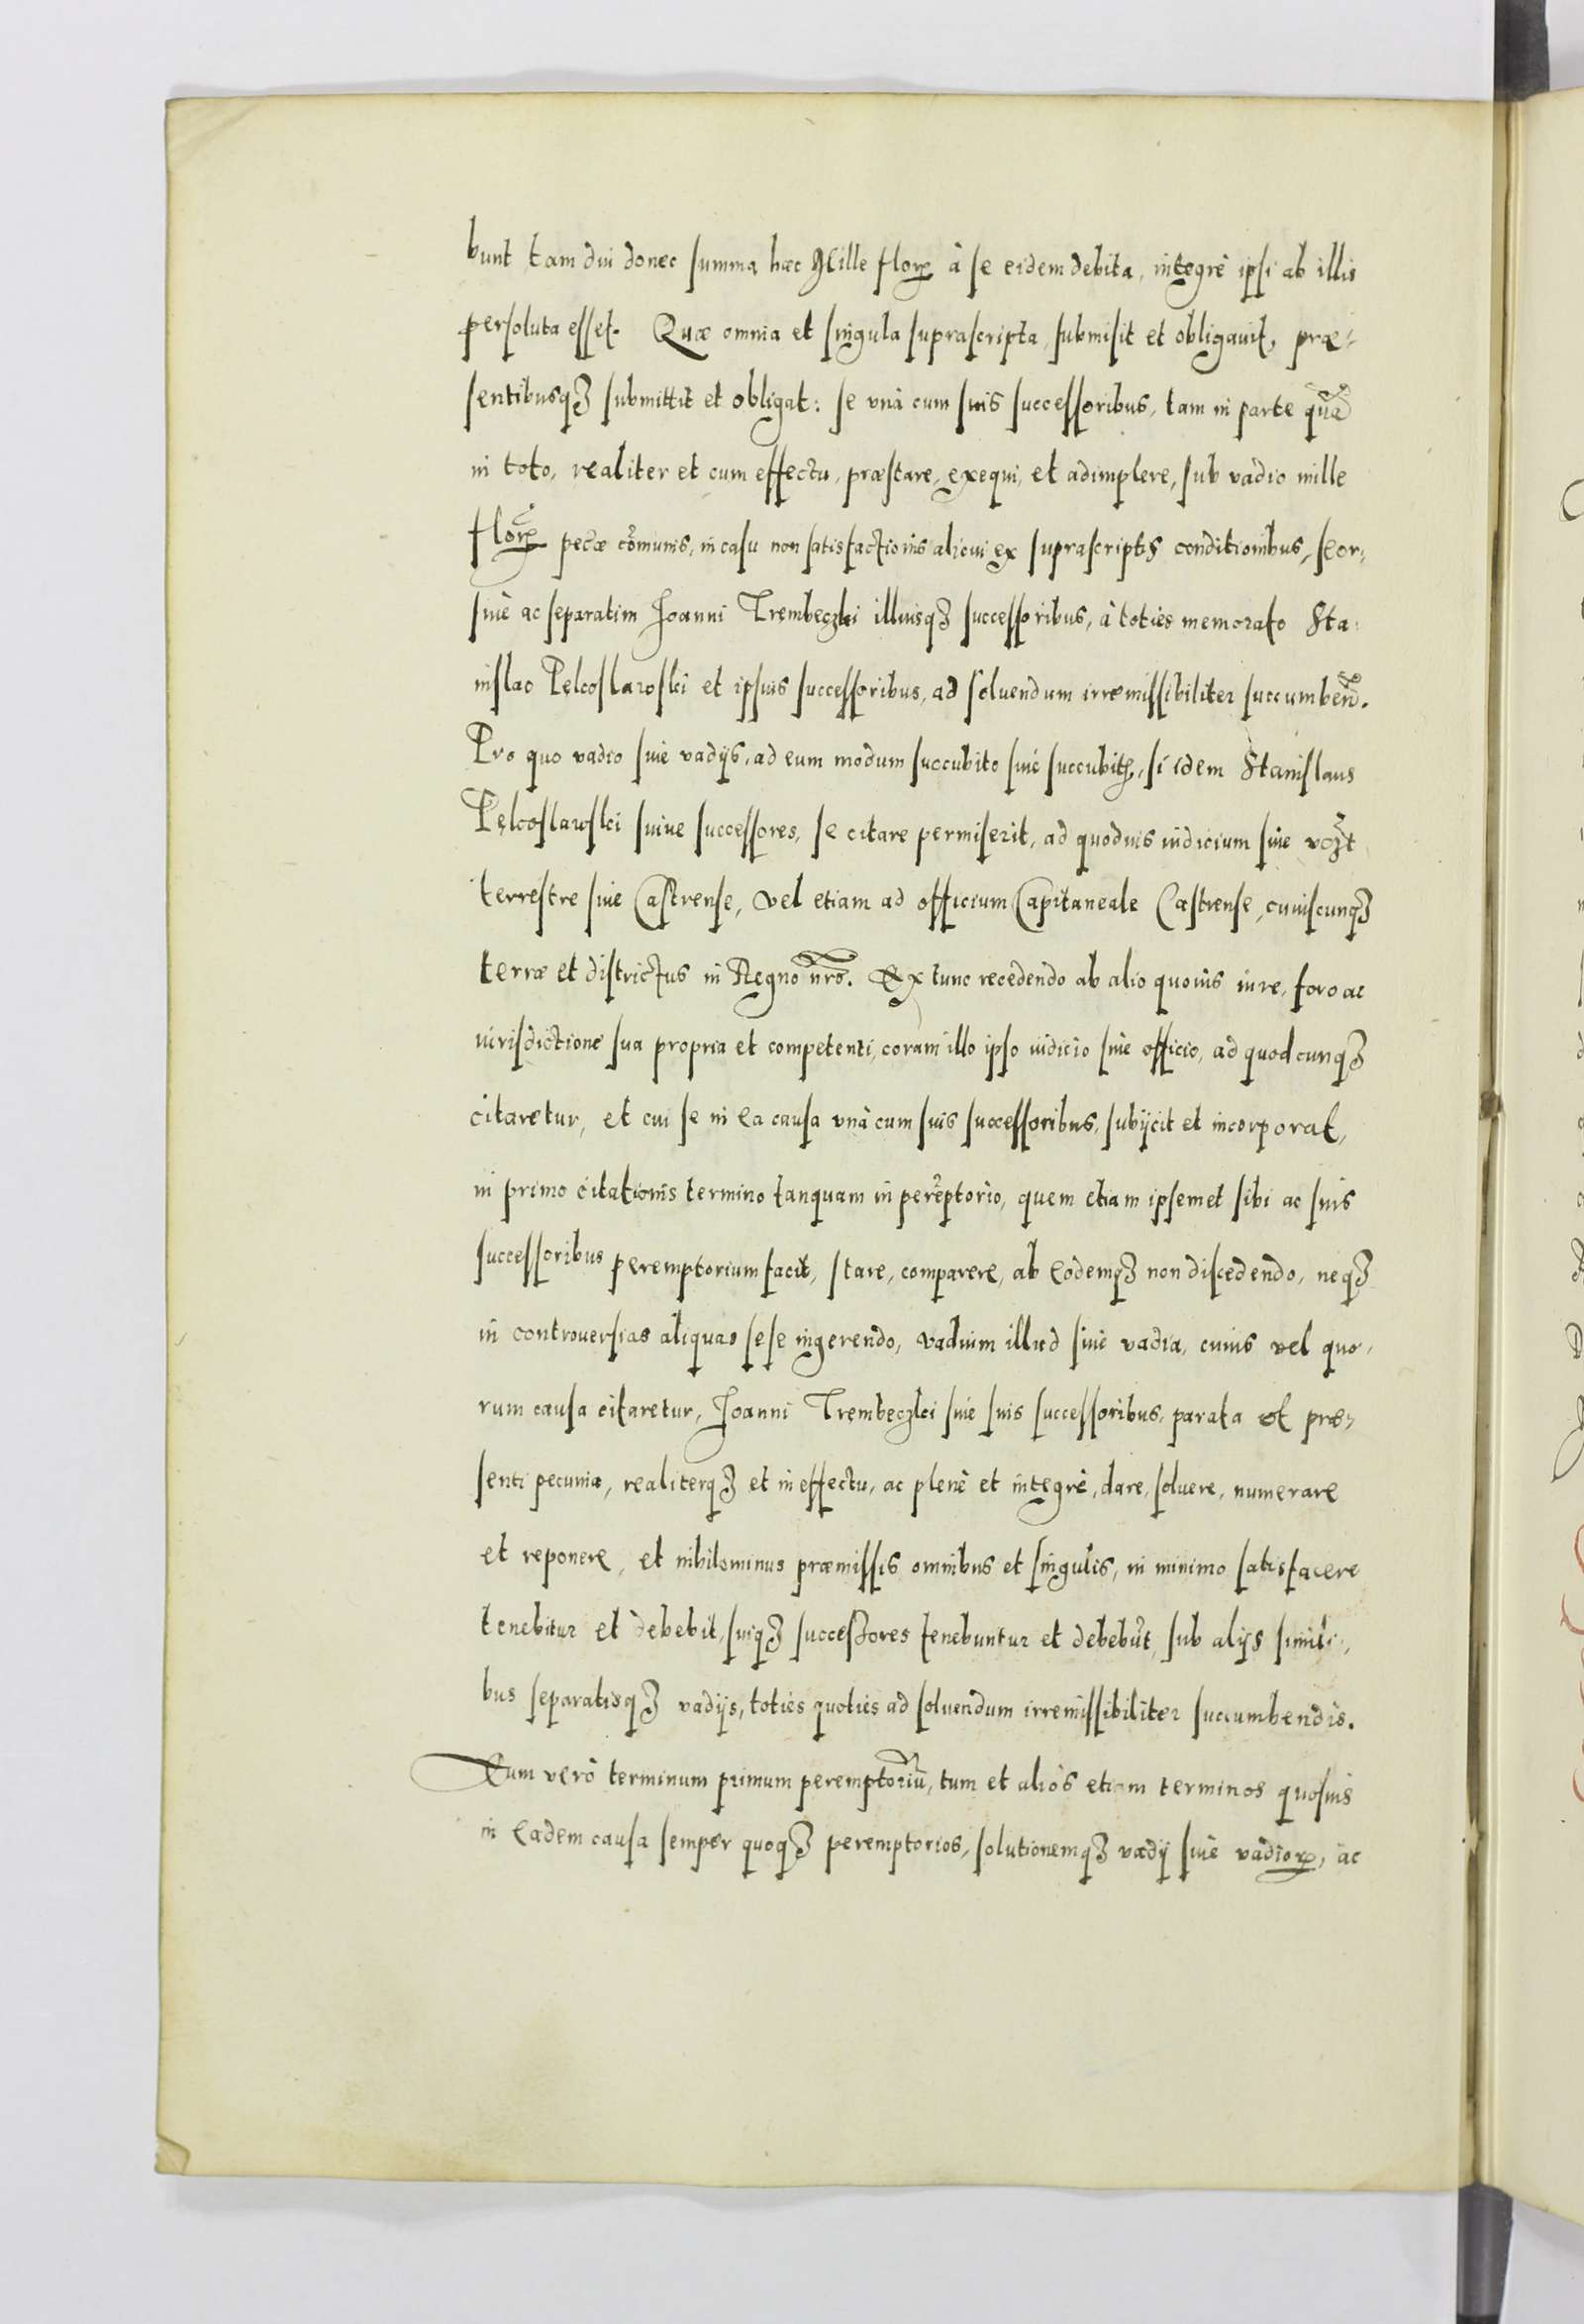 bunt tam diu donec summa hæc Mille floꝝ à se eidem debita, integrè ipsi ab illis
persoluta esset. Quæ omnia et singula suprascripta submisit et obligauit, præ-
sentibusqꝫ submittit et obligat: se vnà cum suis successoribus, tam in parte quã
in toto, realiter et cum effectu, præstare, exequi, et adimplere, sub vadio mille
floꝝ pecũæ cõmunis, in casu non satisfactionis alicui ex suprascriptis conditionibus, seor-
siuè ac separatim Joanni Trembeczki illiusqꝫ successoribus, à toties memorato Sta-
nislao Pękoslawski et ipsius successoribus, ad soluendum irremissibiliter succumbeñ.
Pro quo vadio siue vadijs, ad eum modum succubito siuè succubitis, si idem Stanislaus
Pękoslawski suiue successores, se citare permiserit, ad quoduis iudicium siue
terrestre siue Castrense, vel etiam ad officium Capitaneale Castrense, cuiuscunqꝫ
terræ et districtus in Regno nr̃o. Ex tunc recedendo ab alio quouis iure, foro ac
iurisdictione sua propria et competenti, coram illo ipso iudicio siue officio, ad quodcunqꝫ
citaretur, et cui se in ea causa vnà cum suis successoribus, subijcit et incorporat,
in primo citationis termino tanquam in perẽptorio, quem etiam ipsemet sibi ac suis
successoribus peremptorium facit, stare, comparere, ab eodemqꝫ non discedendo, neqꝫ
in controuersias aliquas sese ingerendo, vadium illud siuè vadia, cuius vel quo-
rum causa citaretur, Joanni Trembeczki siue suis successoribus, parata et præ-
senti pecunia, realiterqꝫ et in effectu, ac plenè et integrè, dare, soluere, numerare
et reponere, et nihilominus præmissis omnibus et singulis, in minimo satisfacere
tenebitur et debebit, suiqꝫ successores tenebuntur et debebũt, sub alijs simili-
bus separatisqꝫ vadijs, toties quoties ad soluendum irremissibiliter succumbendis.
Eum verò terminum primum peremptoriũ, tum et aliòs etiam terminos quosuis
in eadem causa semper quoqꝫ peremptorios, solutionemqꝫ vadij siuè vadioꝝ, ac